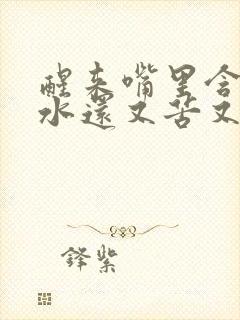 醒来嘴里含
水還又苦又
鋒紫